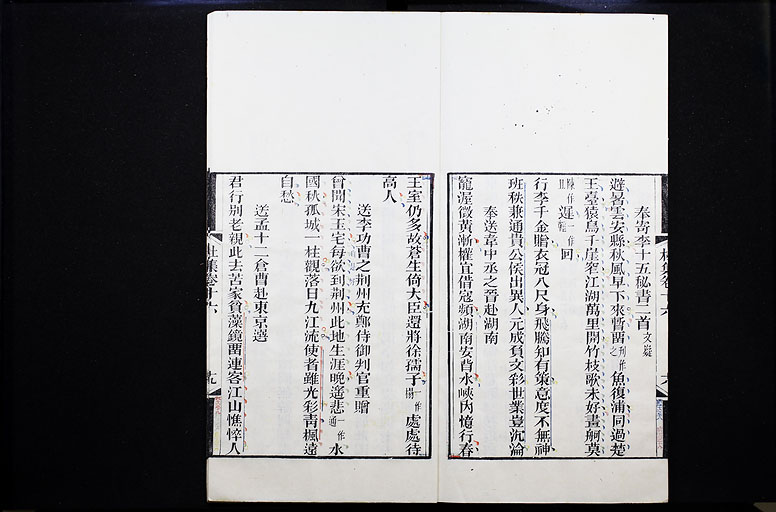 奉寄李十五秘書二首文嶷
避暑雲安縣秋風早下來暫留之刊作魚復浦同過楚
王臺猿鳥千崖窄江湖萬里開竹枝歌未好畫舸莫
陳作且遲一作輕回
行李千金贈衣冠八尺身飛騰知有策意度不無神
班秩兼通貴公侯出異人元成負文彩世業豈沉淪
奉送韋中丞之晉赴湖南
寵渥徵黃漸權宜借寇頻湖南安背水峽內憶行春
王室仍多故蒼生倚大臣還將徐孺子一作榻處處待
高人
送李功曹之荆州充鄭侍御判官重贈
曾聞宋玉宅每欲到荆州此地生涯晚遙悲一作通水
國秋孤城一柱觀落日九江流使者雖光彩青楓遠
自愁
送孟十二倉曹赴東京選
君行別老親此去苦家貧藻鏡留連客江山憔悴人
杜集卷十六
十九